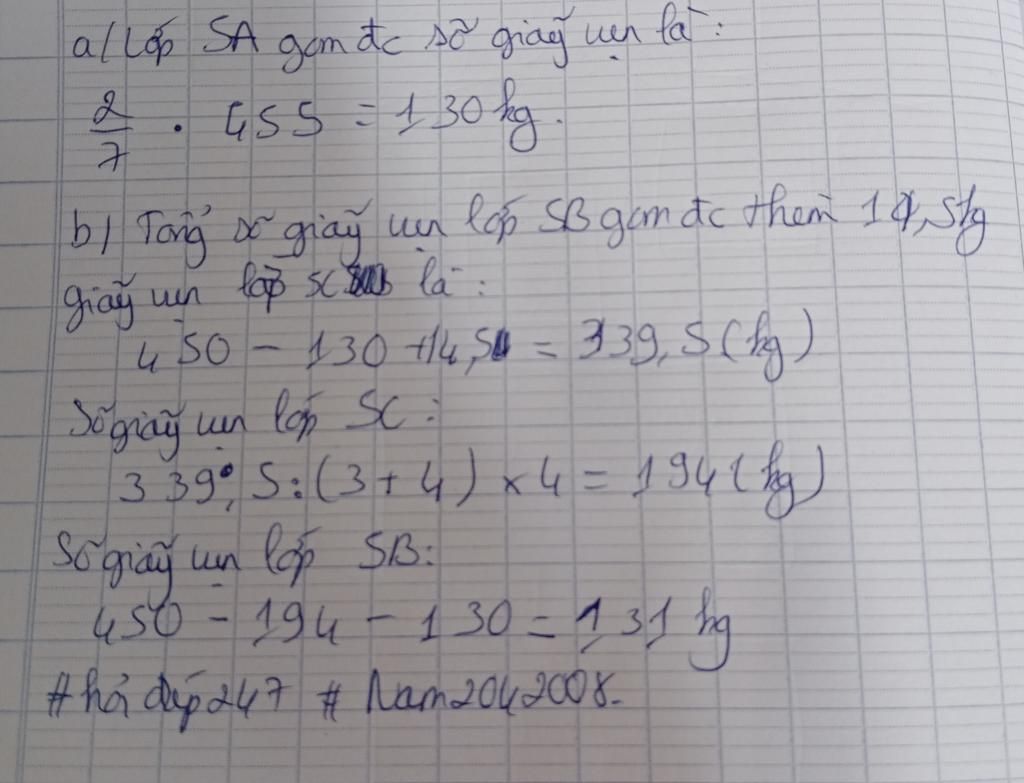 a/ Lớp 5A gom đc số giấy vụn là:
2/7 . 455 = 130 kg.
b/ Tổng số giấy vụn lớp 5B gom đc thêm 14,5kg
giấy vụn lớp 5C là:
450 - 130 + 14,5 = 339,5 (kg)
Số giấy vụn lớp 5C:
339,5 : (3 + 4) × 4 = 194 (kg)
Số giấy vụn lớp 5B:
450 - 194 - 130 = 131 kg
#hỏi đáp247 #Nam2042008.